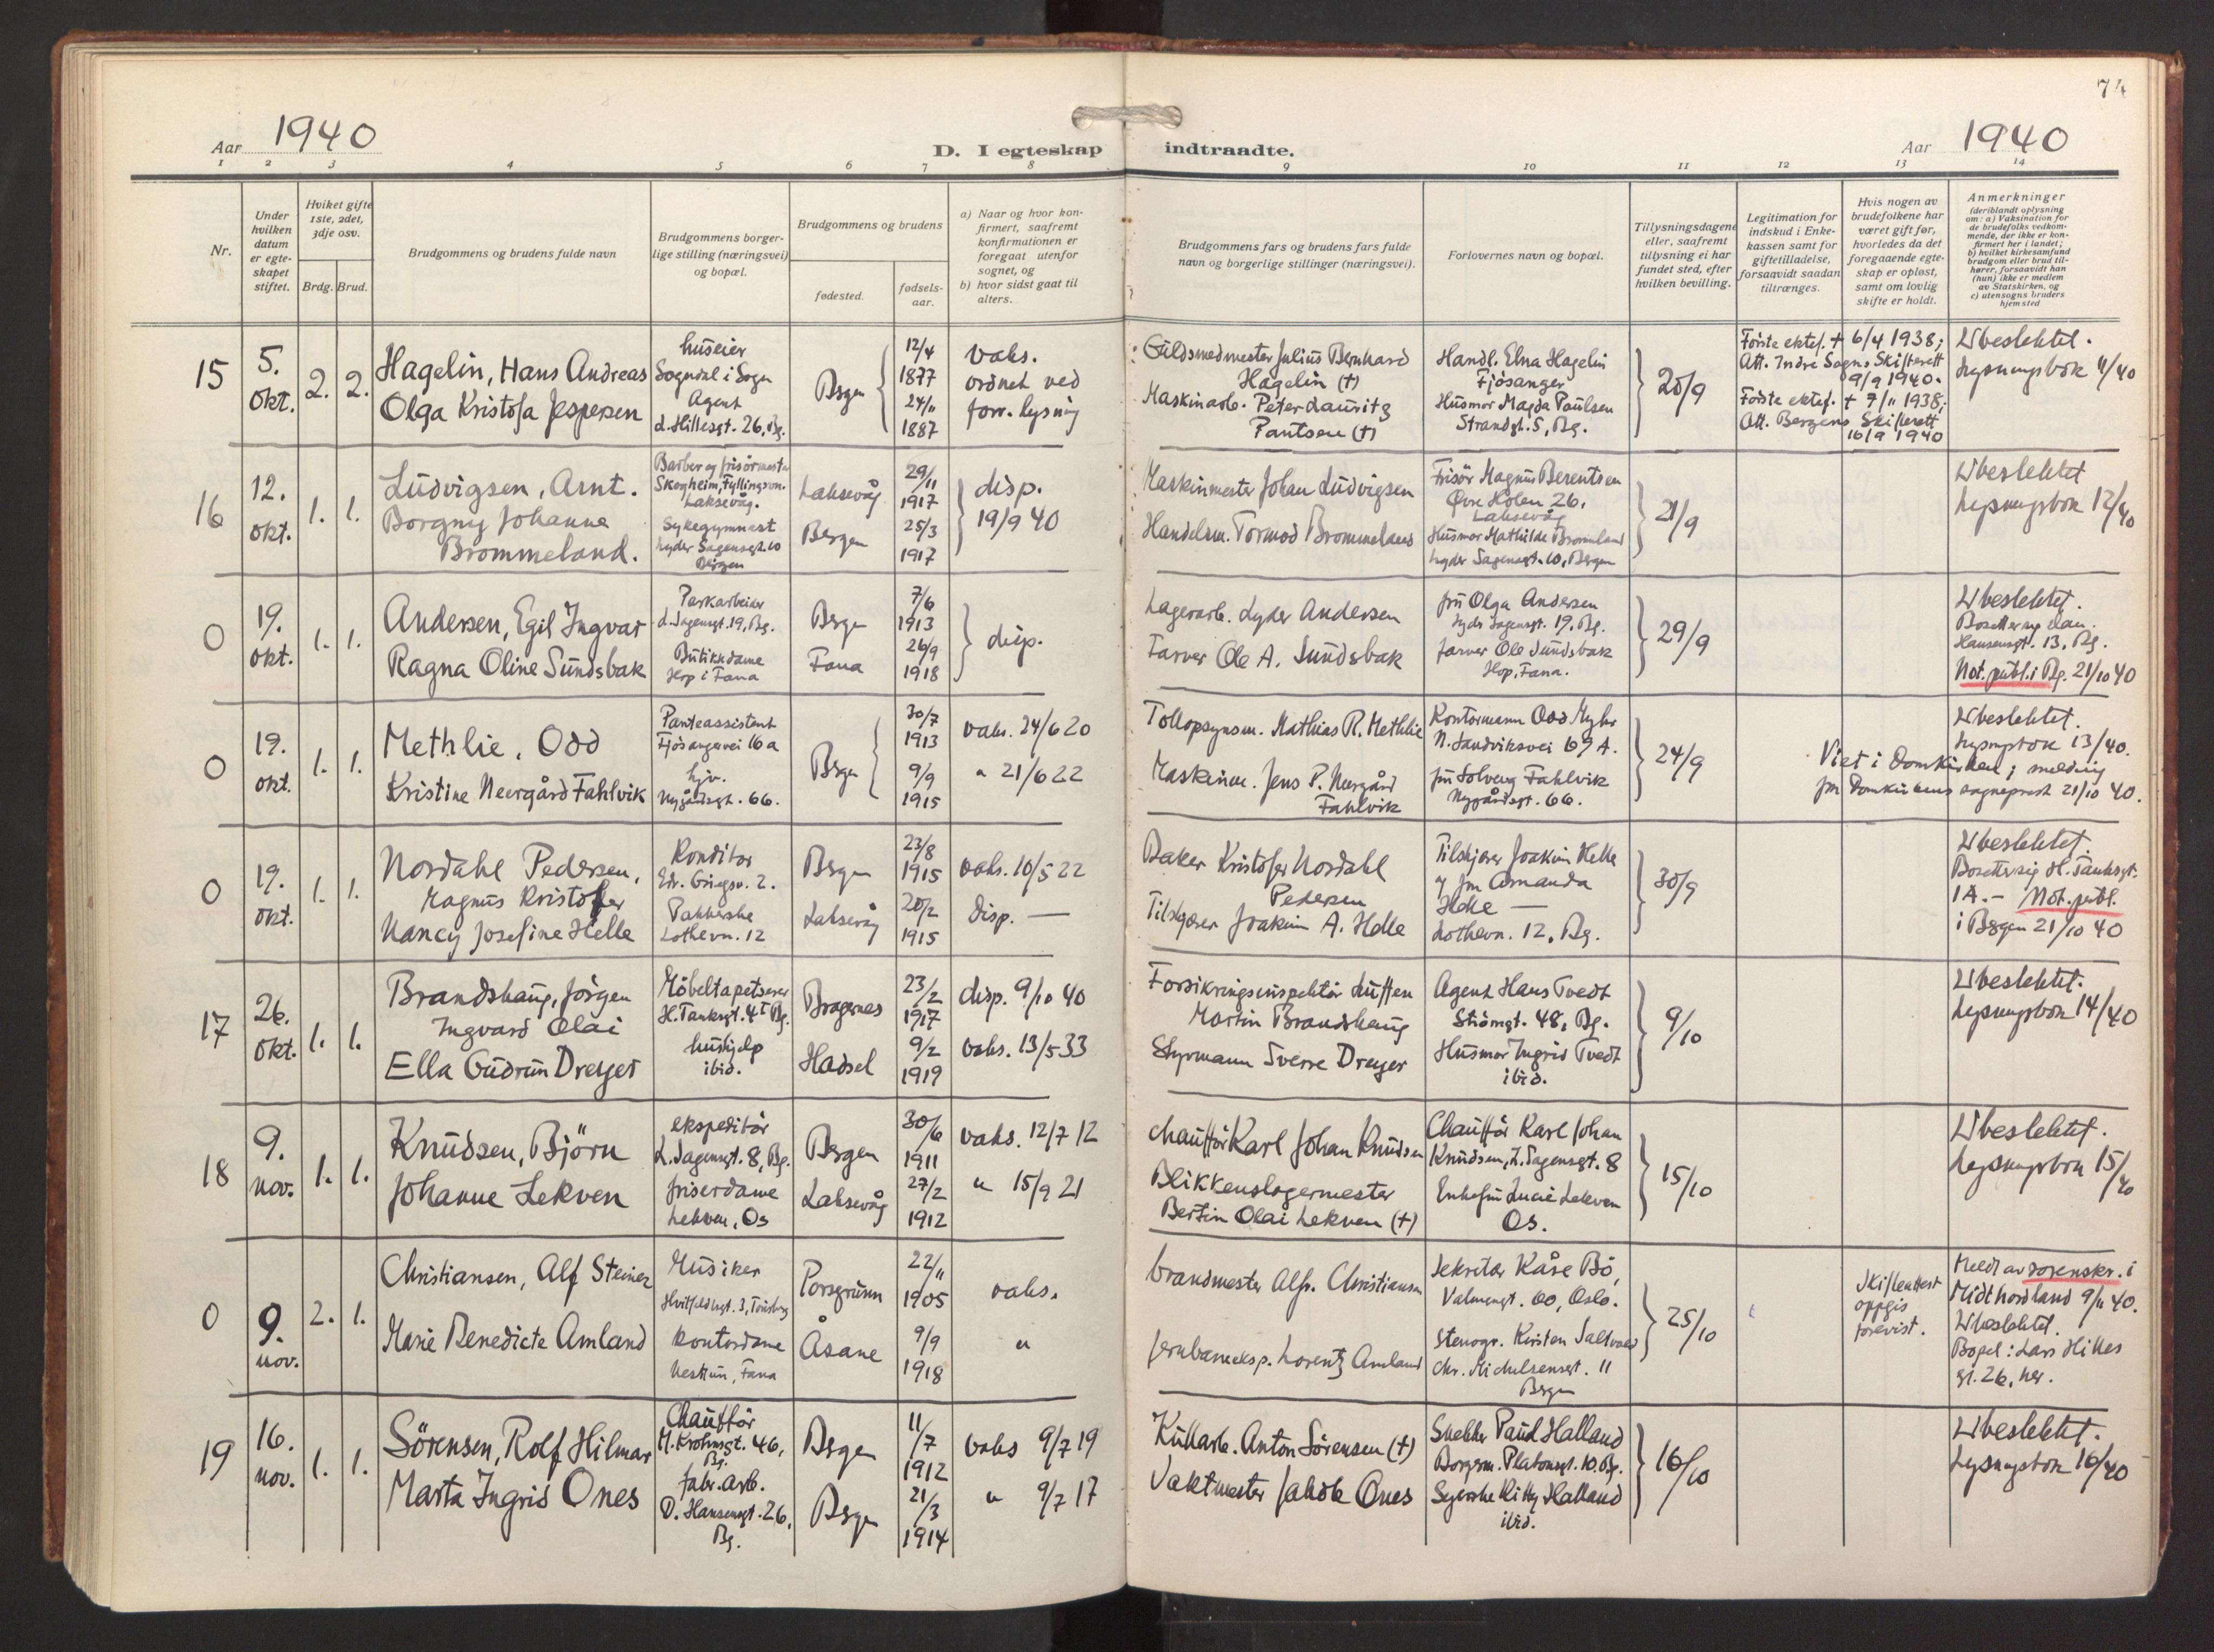 74
Aar 1940
D. I egteskap indtraadte.
Aar 1940
1 2 3 4 5 6 7 8 9 10 11 12 13 14
Nr.
Under
hvilken
datum
er egte-
skapet
stiftet.
Hviket gifte
1ste, 2det,
3dje osv.
Brdg. Brud.
Brudgommens og brudens fulde navn
Brudgommens borger-
lige stilling (næringsvei)
og bopæl.
Brudgommens og brudens
fødested.
fødsels-
aar.
a) Naar og hvor kon-
firmert, saafremt
konfirmationen er
foregaat utenfor
sognet, og
b) hvor sidst gaat til
alters.
Brudgommens fars og brudens fars fulde
navn og borgerlige stillinger (næringsvei).
Forlovernes navn og bopæl.
Tillysningsdagene
eller, saafremt
tillysning ei har
fundet sted, efter
hvilken bevilling.
Legitimation for
indskud i Enke-
kassen samt for
giftetilladelse,
forsaavidt saadan
tiltrænges.
Hvis nogen av
brudefolkene har
været gift før,
hvorledes da det
foregaaende egte-
skap er opløst,
samt om lovlig
skifte er holdt.
Anmerkninger
(deriblandt oplysning
om: a) Vaksination for
de brudefolks vedkom-
mende, der ikke er kon-
firmert her i landet;
b) hvilket kirkesamfund
brudgom eller brud til-
hører, forsaavidt han
(hun) ikke er medlem
av Statskirken, og
c) utensogns bruders
hjemsted
15
5.
okt.
2. 2.
Hagelin, Hans Andreas
Olga Kristofa Jespersen
huseier
Sogndal i Sogn
Agent
L. Hillesgt. 26, Bg.
Bergen
12/4
1877
24/11
1887
vaks.
ordnet ved
forr. lysning
Guldsmedmester Julius Bernhard
Hagelin (†)
Maskinarb. Peter Lauritz
Pantsen (†)
Handl. Elna Hagelin
Fjösanger
Husmor Magda Paulsen
Strandgt. 5, Bg.
20/9
Förste ektef. † 6/4 1938;
Att. Indre Sogns Skifterett
9/9 1940.
Förste ektef. † 7/11 1938;
Att. Bergens Skifterett
16/9 1940
Ubeslektet.
Lysningsbok 11/40
16
12.
okt.
1. 1.
Ludvigsen, Arnt.
Borgny Johanne
Brommeland.
Barber og frisörmester
Skogheim, Fyllingsvn.
Laksevåg.
Sykegymnast
Lyder Sagensgt. 10
Bergen
Laksevåg
Bergen
29/11
1917
25/3
1917
disp.
19/9 40
Maskinmester Johan Ludvigsen
Handelsm. Tormod Brommeland
Frisör Magnus Berentsen
Övre Holen 26,
Laksevåg
Husmor Mathilde Bromeland
Lyder Sagensgt. 10, Bergen
21/9
Ubeslektet
Lysningsbok 12/40
0
19.
okt.
1. 1.
Andersen, Egil Ingvar
Ragna Oline Sundsbak
Parkarbeider
L. Sagensgt. 19, Bg.
Butikkdame
Hop i Fana
Bergen
Fana
7/6
1913
26/9
1918
disp.
Lagerarb. Lyder Andersen
Farver Ole A. Sundsbak
fru Olga Andersen
Lyder Sagensgt. 19, Bg.
farver Ole Sundsbak
Hop, Fana.
29/9
Ubeslektet.
Bosetter seg Dan.
Hansensgt. 13, Bg.
Not. publ. i Bg. 21/10 40
0
19.
okt.
1. 1.
Methlie, Odd
Kristine Neergård Fahlvik
Panteassistent
Fjösangervei 16 a
hjv.
Nygårdsgt. 66.
Bergen
30/7
1913
9/9
1915
vaks. 24/6 20
" 21/6 22
Tollopsynsm. Mathias R. Methlie
Maskinm. Jens P. Neergård
Fahlvik
Kontormann Odd Myhr
N. Sandviksvei 69 A.
fru Solveig Fahlvik
Nygårdsgt. 66.
24/9
Ubeslektet.
Lysningsbok 13/40.
Viet i Domkirken; melding
fra Domkirkens sogneprest 21/10 40.
0
19.
okt.
1. 1.
Nordahl Pedersen,
Magnus Kristofer
Nancy Josefine Helle
Konditor
Edv. Griegsv. 2.
Pakkerske
Lothevn. 12
Bergen
Laksevåg
23/8
1915
20/2
1915
vaks. 10/5 22
disp. —
Baker Kristofer Nordahl
Pedersen
Tilskjærer Joakim A. Helle
Tilskjærer Joakim Helle
og fru Amanda
Helle —
Lothevn. 12, Bg.
30/9
Ubeslektet.
Bosetter sig H. Tanksgt.
1 A. — Not. publ.
i Bergen 21/10 40
17
26.
okt.
1. 1.
Brandshaug, Jörgen
Ingvard Olai
Ella Gudrun Dreyer
Möbeltapetserer
H. Tanksgt. 4 I Bg.
hushjelp
ibid.
Bragernes
Hadsel
23/2
1917
9/2
1919
disp. 9/10 40
vaks. 13/5 33
Forsikringsinspektör
Martin Brandshaug
Styrmann Sverre Dreyer
Agent Hans Tvedt
Strömgt. 48, Bg.
Husmor Ingrid Tvedt
ibid.
9/10
Ubeslektet.
Lysningsbok 14/40
18
9.
nov.
1. 1.
Knudsen, Björn
Johanne Lekven
ekspeditör
L. Sagensgt. 8, Bg.
friserdame
Lekven, Os
Bergen
Laksevåg
30/6
1911
27/2
1912
vaks. 12/7 12
" 15/9 21
Chaufför Karl Johan Knudsen
Blikkenslagermester
Bertin Olai Lekven (†)
Chaufför Karl Johan
Knudsen, L. Sagensgt. 8
Enkefru Lucie Lekven
Os.
15/10
Ubeslektet.
Lysningsbok 15/40
0
9.
nov.
2. 1.
Christiansen, Alf Steiner
Marie Benedicte Amland
Musiker
Hvitfeldtsgt. 3, Tönsberg
kontordame
Nesttun, Fana
Porsgrunn
Åsane
22/11
1905
9/9
1918
vaks.
"
brandmester Alfr. Christiansen
jernbaneeksp. Lorentz Amland
Sekretær Kåre Bö,
Valmuegt. 60, Oslo.
Stenogr. Kirsten
Chr. Michelsensgt. 11
Bergen
25/10
Skifteattest
oppgis
forevist.
Meldt av sorenskr. i
Midthordland 9/11 40.
Ubeslektet.
Bopel: Lars Hilles
gt. 26, her.
19
16.
nov.
1. 1.
Sörensen, Rolf Hilmar
Marta Ingrid Ones
Chaufför
M. Krohnsgt. 46,
Bg.
fabr. arb.
D. Hansensgt. 26,
Bg.
Bergen
Bergen
11/7
1912
21/3
1914
vaks 9/7 19
" 9/7 17
Kullarb. Anton Sörensen (†)
Vaktmester Jakob Ones
Snekker Paul Halland
Borgerm. Platousgt. 10. Bg.
Syerske Kitty Halland
ibid.
16/10
Ubeslektet.
Lysningsbok 16/40